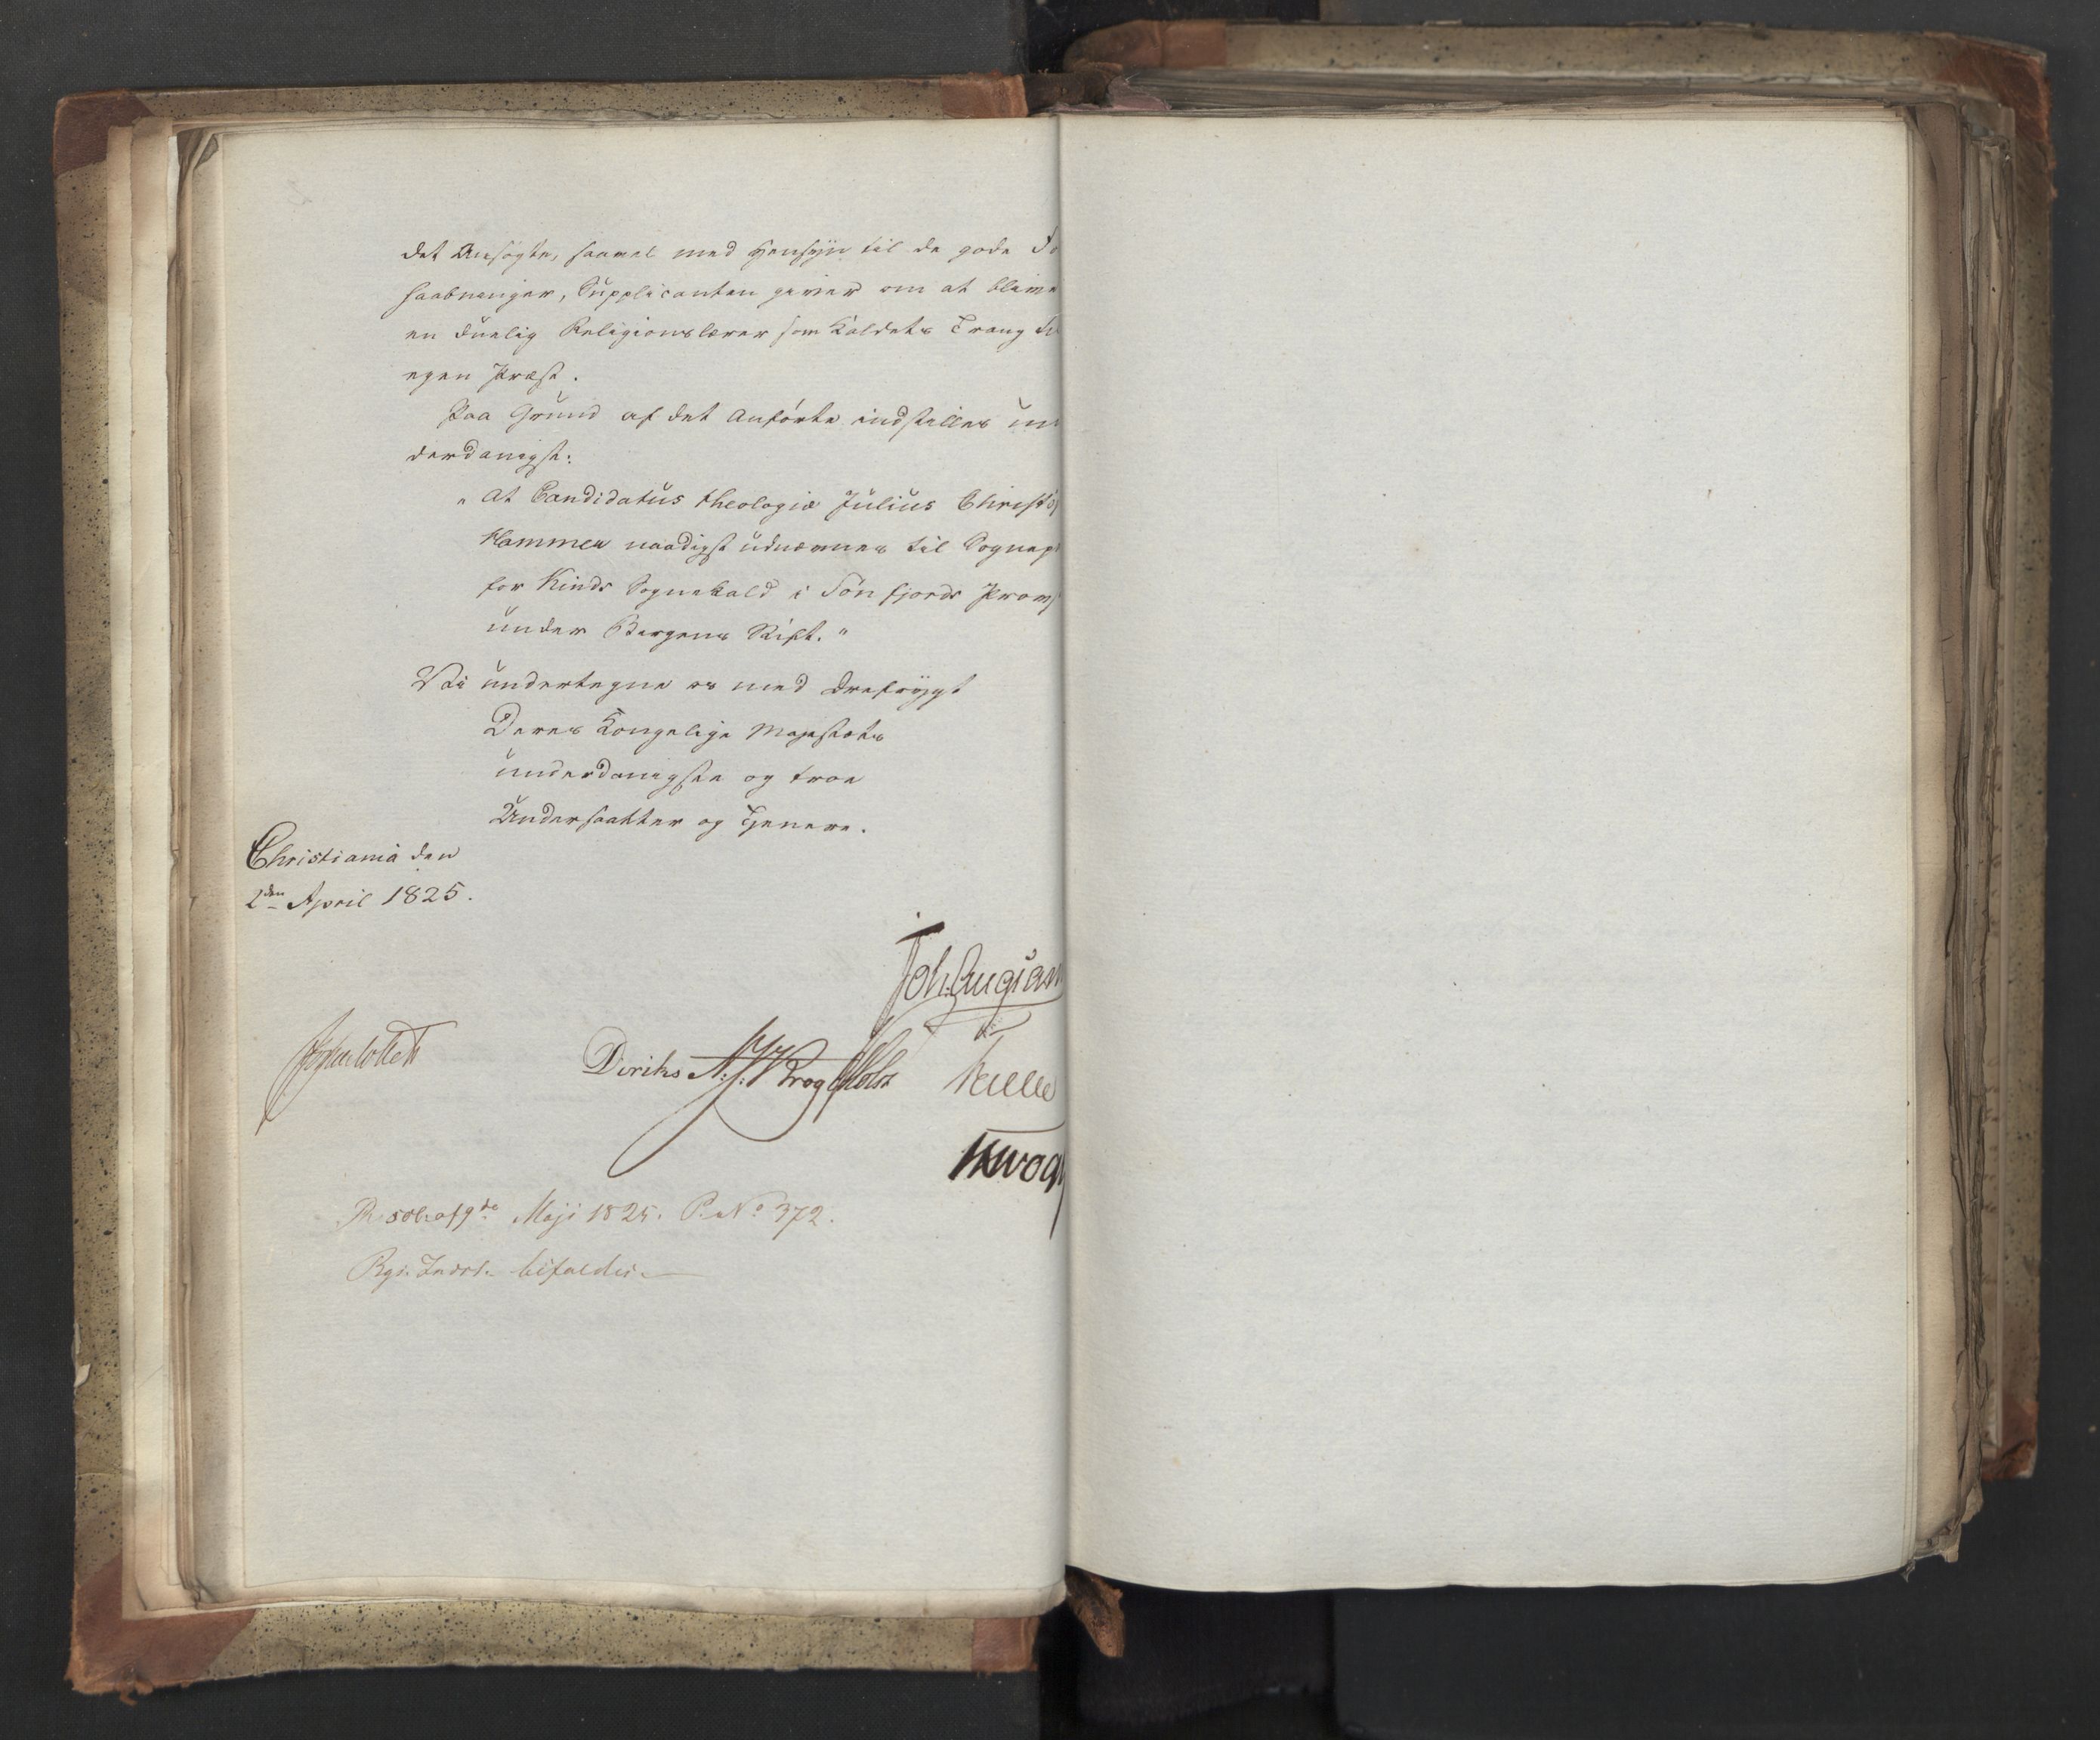 det Ansøgte, saavel med Hensyn til de gode Fo
haabninger, Supplicanten giver om at blive
en duelig Religionslærer som Kaldets Trang til
egen Præst.
Paa Grund af det Anførte indstilles un
derdanigst:
"At Candidatus theologiæ Julius Christi
Hammer naadigst udnævnes til Sognepr
for Kinds Sognekald i Søndfjords Provs
under Bergens Stift."
Vi undertegne os med Ærefrygt
Deres Kongelige Majestæts
underdanigste og troe
Undersaatter og Tjenere.
Christiania den
2den April 1825.
Joh: Collett
Diriks A: J: Krog Holst
Resol: af 9de Maji 1825. P. No 372.
Rgs. Indst. bifaldes.